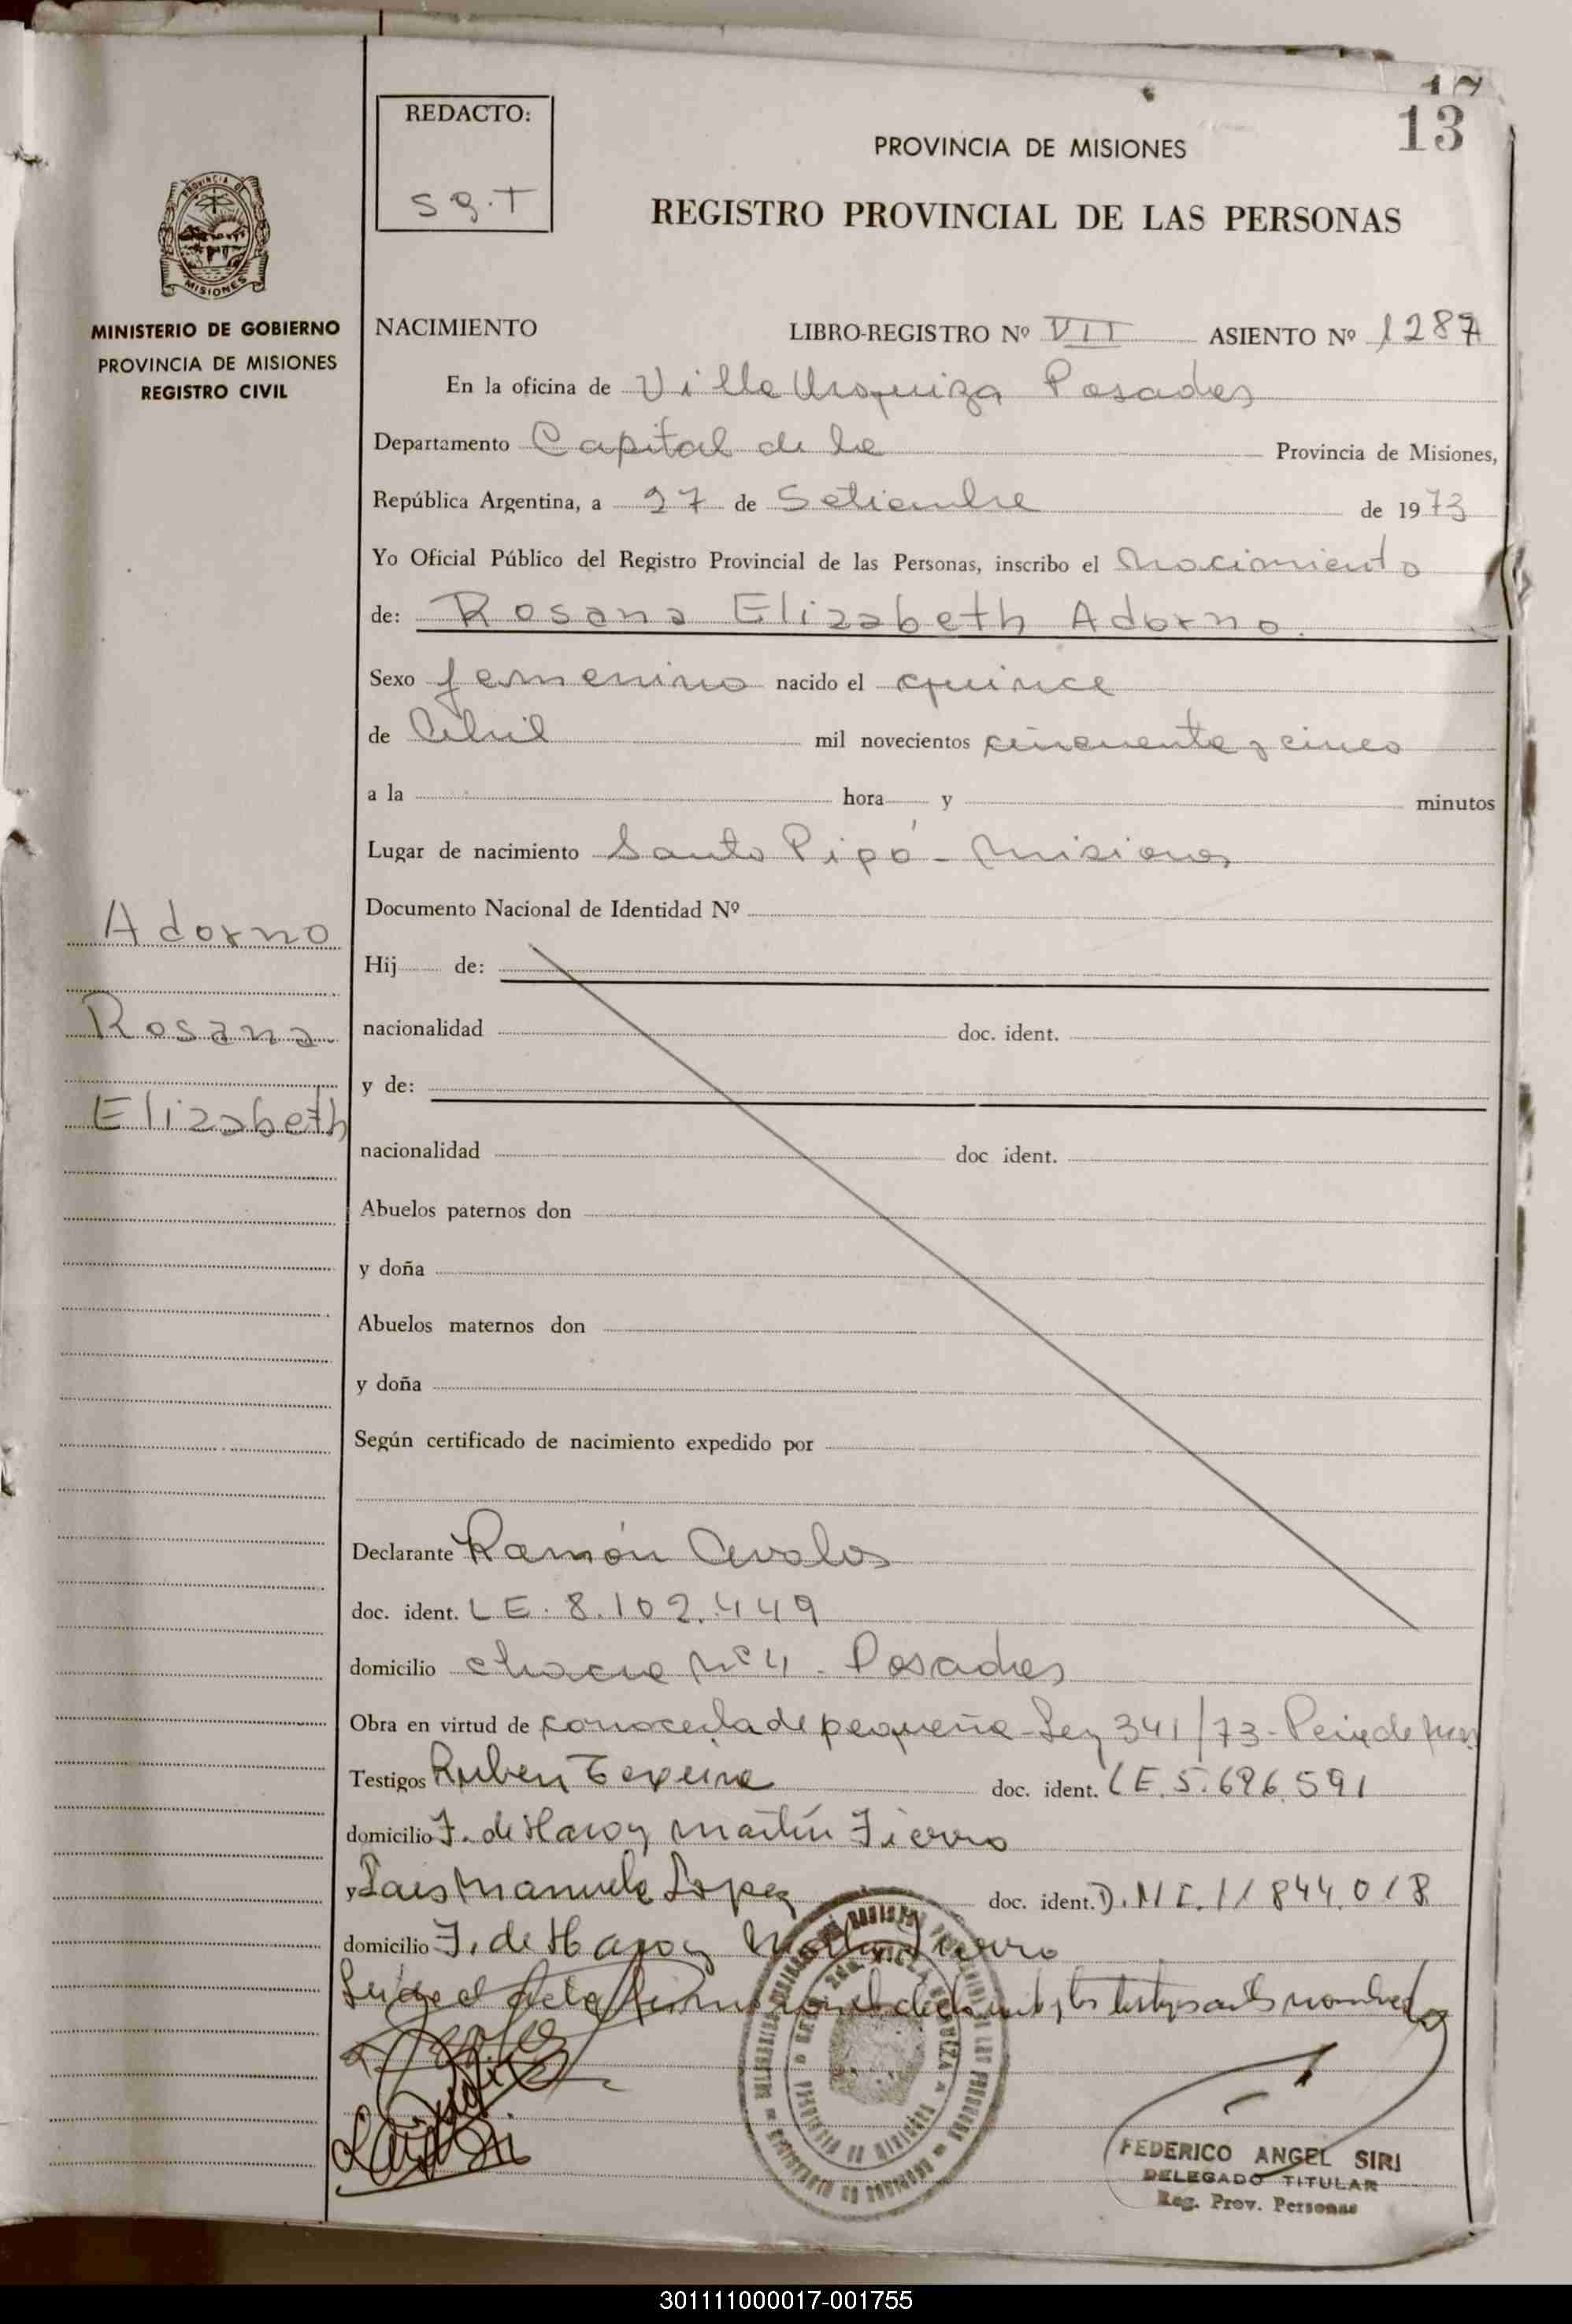 13
REDACTO:
S g. T
PROVINCIA DE MISIONES
REGISTRO PROVINCIAL DE LAS PERSONAS
MISIONES
MINISTERIO DE GOBIERNO
PROVINCIA DE MISIONES
REGISTRO CIVIL
NACIMIENTO LIBRO-REGISTRO Nº VII ASIENTO Nº 1287
En la oficina de Villa Urquiza Posadas
Departamento Capital de la Provincia de Misiones,
República Argentina, a 27 de Setiembre de 1973
Yo Oficial Público del Registro Provincial de las Personas, inscribo el nacimiento
de: Rosana Elizabeth Adorno.
Sexo femenino nacido el quince
de Abril mil novecientos cincuenta y cinco
a la hora y minutos
Lugar de nacimiento Santo Pipó - Misiones
Documento Nacional de Identidad Nº
Adorno
Rosana
Elizabeth
Hij de:
nacionalidad doc. ident.
y de:
nacionalidad doc ident.
Abuelos paternos don
y doña
Abuelos maternos don
y doña
Según certificado de nacimiento expedido por
Declarante Ramón Avalos
doc. ident. L E. 8.102.449
domicilio chacra Nº 4 - Posadas
Obra en virtud de conocerla de pequeña - Ley 341/73 -
Testigos Ruben Texeira doc. ident. L E. 5.696.591
domicilio F. de Haro y Martín Fierro
y Lais Manuela Lopez doc. ident. D.N I. 11844.018
domicilio F. de Haro y Martin Fierro
el acta los testigos antes nombrados
FEDERICO ANGEL SIRI
DELEGADO TITULAR
Reg. Prov. Personas
301111000017-001755